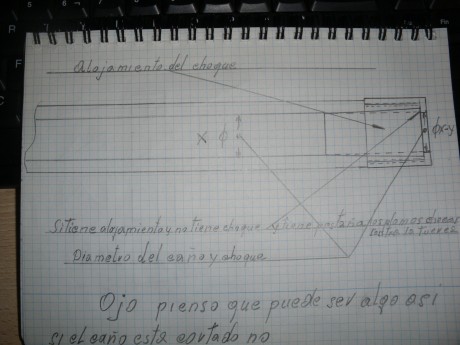 Alojamiento del choque
X Φ
Φx-y
Si tiene alojamiento y no tiene choque y tiene pestaña
contra la tuerca
Diametro del caño y choque
Ojo pienso que puede ser algo asi
si el caño esta cortado no